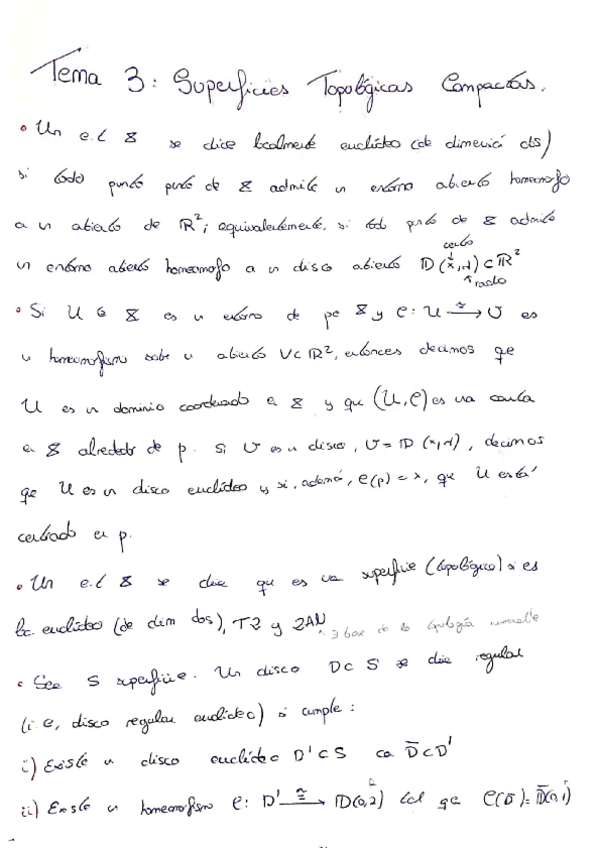 Tema 3: Superficies Topológicas Compactas.
• Un e.t X se dice localmente euclídeo (de dimensión dos)
si todo punto punto de X admite un entorno abierto homeomorfo
a un abierto de ℝ²; equivalentemente, si todo punto de X admite
centro
un entorno abierto homeomorfo a un disco abierto D(x,r) ⊂ ℝ²
↑ radio
• Si U ⊂ X es un entorno de p ∈ X y φ: U ≅→ V es
un homeomorfismo sobre un abierto V ⊂ ℝ², entonces decimos que
U es un dominio coordenado en X y que (U, φ) es una carta
en X alrededor de p. Si V es un disco, V = D(x,r), decimos
que U es un disco euclídeo y si, además, φ(p) = x, que U está
centrado en p.
• Un e.t X se dice que es una superficie (topológica) si es
loc. euclídeo (de dim dos), T2 y 2AN ∃ base de la topología numerable
• Sea S superficie. Un disco D ⊂ S se dice regular
(i.e, disco regular euclídeo) si cumple:
i) Existe un disco euclídeo D' ⊂ S ca D̄ ⊂ D'
ii) Existe un homeomorfismo φ: D' ≅→ D(0,2) tal que φ(D̄) = D̄(0,1)